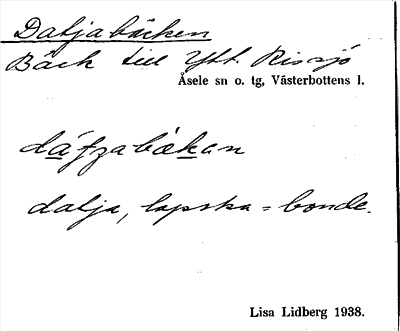 Daljabäcken
Bäck till Ytt. Rissjö
Åsele sn o. tg, Västerbottens l.
dalja, lapska = bonde.
Lisa Lidberg 1938.